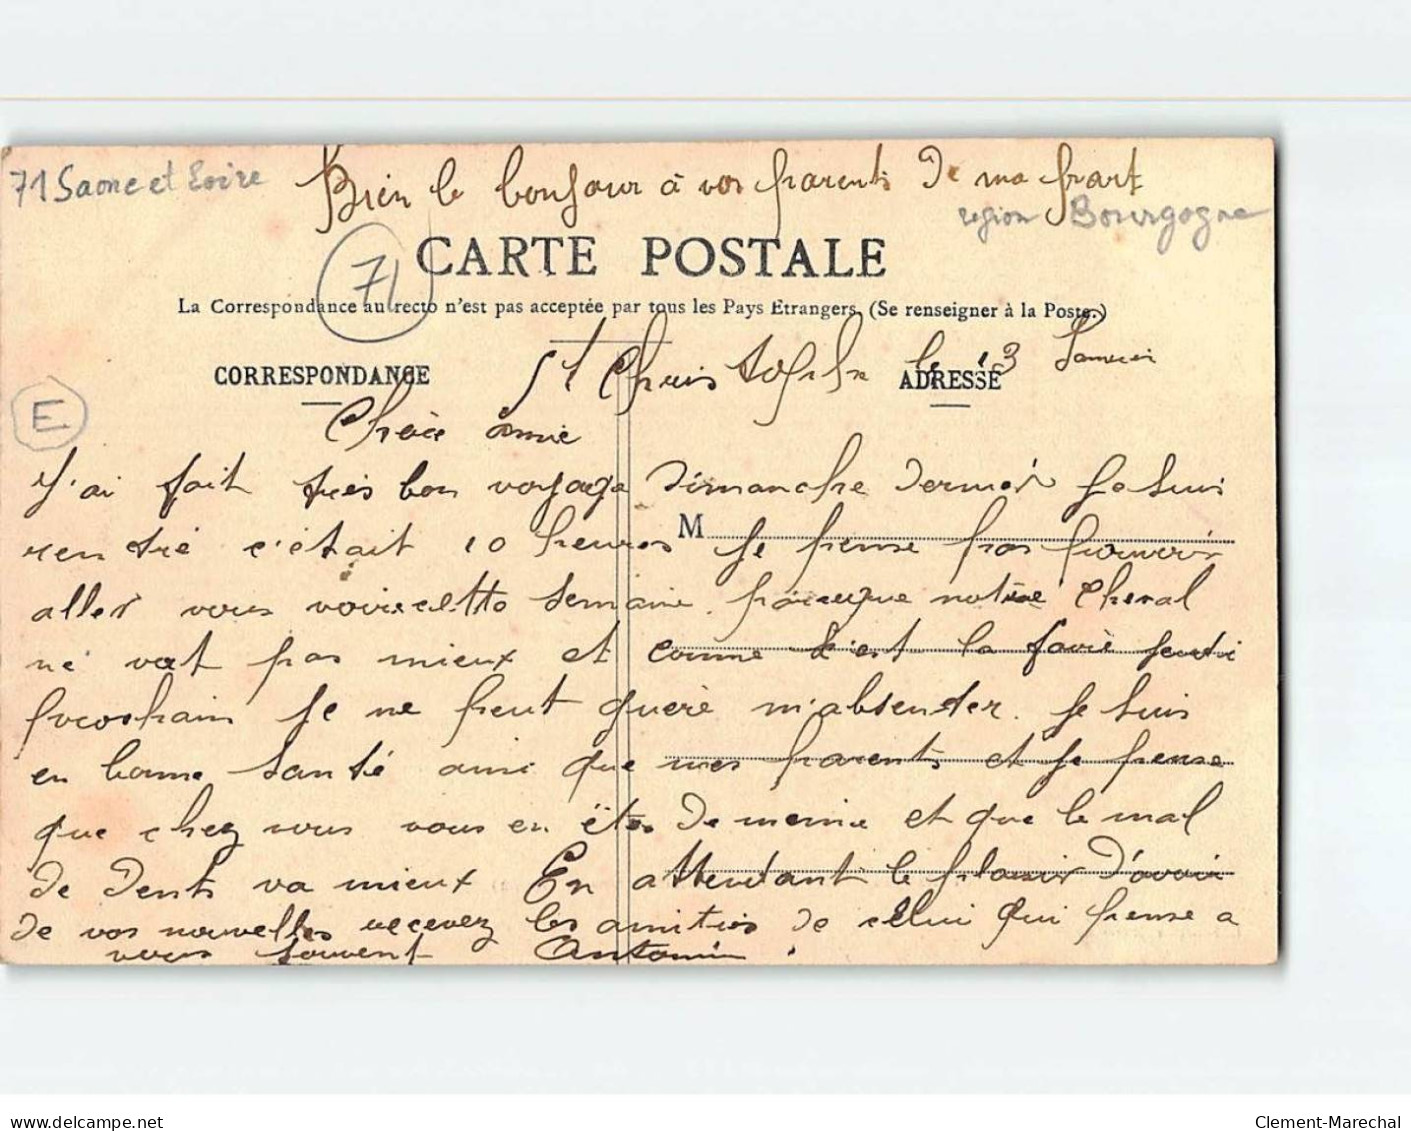 71 Saone et Loire
Bien le bonjour à vos parents de ma part
region Bourgogne
71
CARTE POSTALE
La Correspondance au recto n'est pas acceptée par tous les Pays Etrangers. (Se renseigner à la Poste.)
CORRESPONDANCE
ADRESSE
St Christophe le 13 Janvier
E
Chère amie
J'ai fait très bon voyage Dimanche dernier Je suis
M
rentré c'était 10 heures Je pense pas pouvoir
aller vous voir cette semaine parceque notre cheval
ne vat pas mieux et comme c'est la foire jeudi
prochain Je ne peut guère m'absenter. Je suis
en bonne santé ainsi que mes parents et Je pense
que chez vous vous en êtes de meme et que le mal
de dents va mieux En attendant le plaisir d'avoir
de vos nouvelles recevez les amitiés de celui qui pense a
vous souvent Antonin.
www.delcampe.net
Clement-Marechal